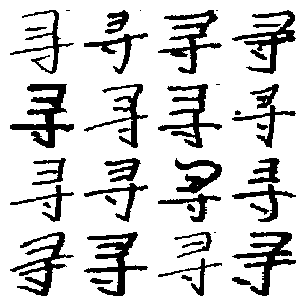 寻寻寻寻
寻寻寻寻
寻寻寻寻
寻寻寻寻